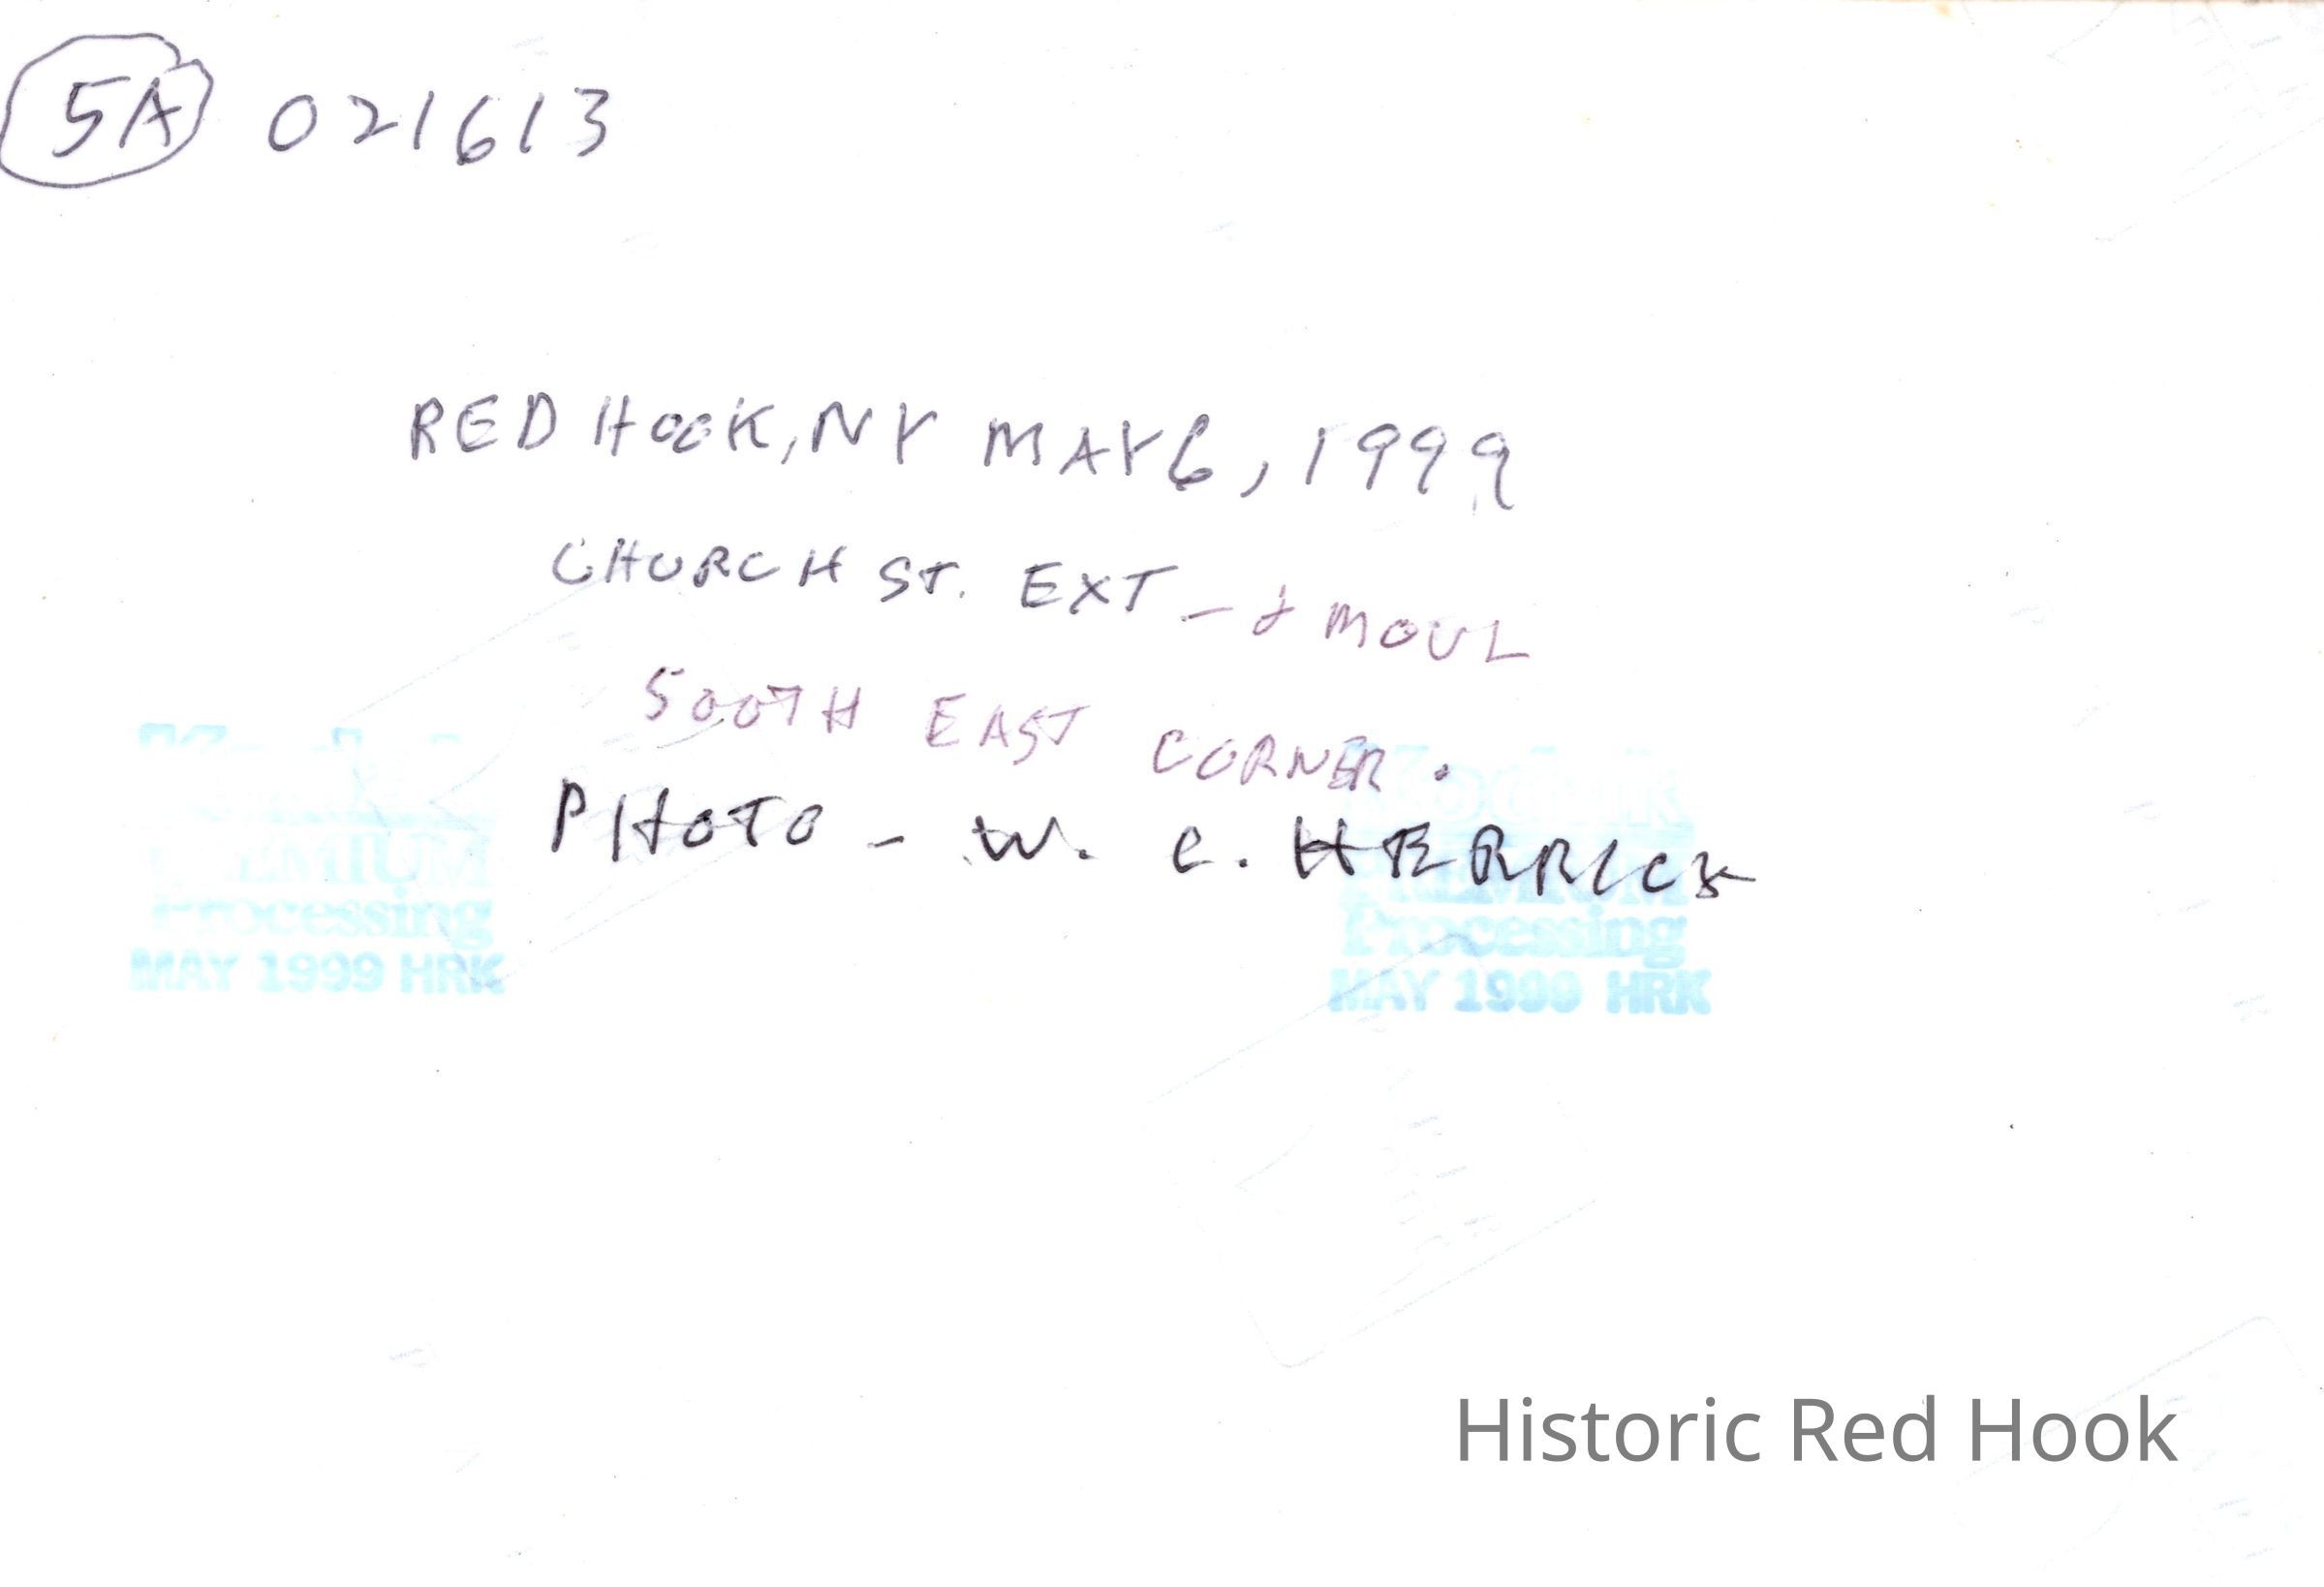 5A 021613
RED HOOK, NY MAY 6, 1999
CHURCH ST. EXT - & MOUL
SOUTH EAST CORNER.
PHOTO - W. C. HERRICK
PREMIUM
Processing
MAY 1999 HRK
Kodak
PREMIUM
Processing
MAY 1999 HRK
Historic Red Hook